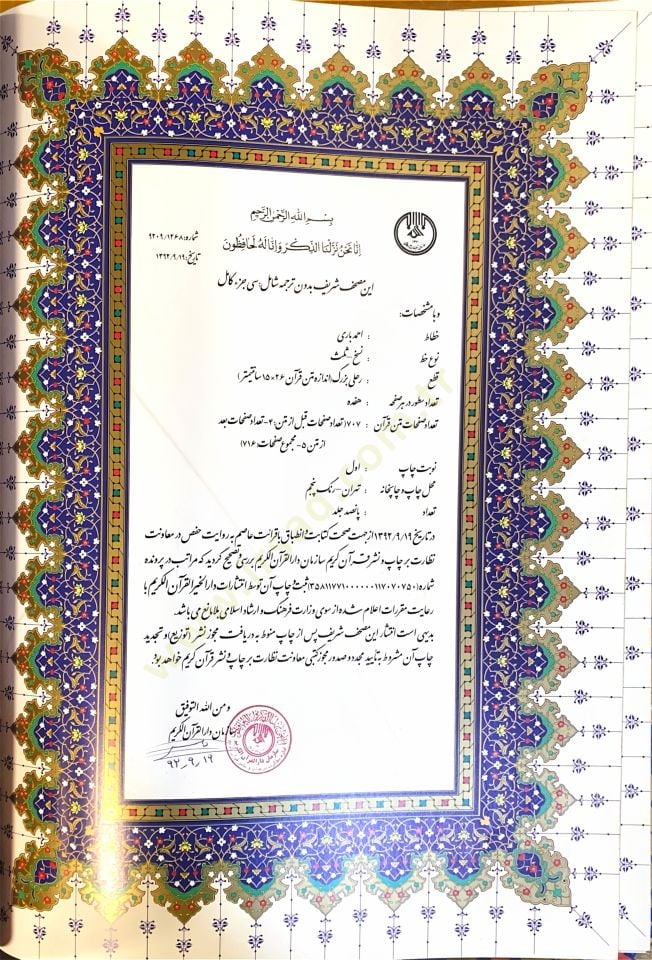 بِسْمِ اللهِ الرَّحْمنِ الرَّحِيمِ
شماره: ۹۲۰۹/۱۲۶۸
اِنّا نَحْنُ نَزَّلْنَا الذِّكْرَ وَ اِنّا لَهُ لَحافِظُونَ
تاریخ: ۱۳۹۲/۹/۱۹
این مصحف شریف بدون ترجمه شامل: سی جزء کامل
و با مشخصات:
خطاط : احمد باری
نوع خط : نسخ - ثلث
قطع : رحلی بزرگ (اندازه متن قرآن ۲۶×۱۵ سانتیمتر)
تعداد سطور در هر صفحه : هفده
تعداد صفحات متن قرآن : ۷۰۷ (تعداد صفحات قبل از متن: ۴ - تعداد صفحات بعد
از متن ۵ - مجموع صفحات: ۷۱۶)
نوبت چاپ : اول
محل چاپ و چاپخانه : تهران - رنگ پنجم
تعداد : پانصد جلد
در تاریخ ۱۳۹۲/۹/۱۹ از جهت صحت کتابت و انطباق با قرائت عاصم به روایت حفص در معاونت
نظارت بر چاپ و نشر قرآن کریم سازمان دارالقرآن الکریم بررسی و تصحیح گردید که مراتب در پرونده
شماره (۳۵۸۱۱۷۷۱۰۰۰۰۰۰۱۱۷۰۷۰۷۵۰) ثبت و چاپ آن توسط انتشارات دارالخیر القرآن الکریم با
رعایت مقررات اعلام شده از سوی وزارت فرهنگ و ارشاد اسلامی بلامانع می باشد.
بدیهی است انتشار این مصحف شریف پس از چاپ منوط به دریافت مجوز نشر (توزیع) و تجدید
چاپ آن مشروط به تأیید مجدد و صدور مجوز کتبی معاونت نظارت بر چاپ و نشر قرآن کریم خواهد بود.
و من الله التوفیق
سازمان دارالقرآن الکریم
۹۲_۹_۱۹